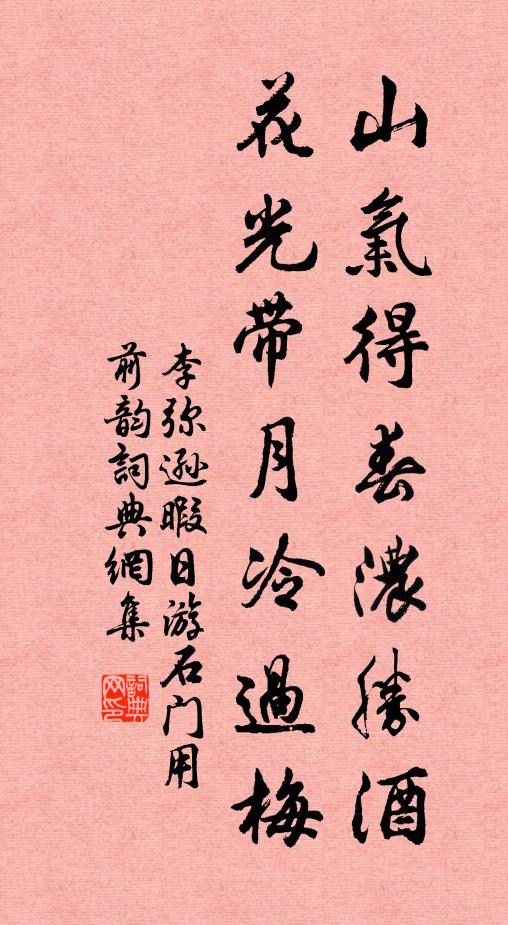 山氣得春濃勝酒
花光帶月冷過梅
李弥遜暇日游石门用
前韵詞典網集
詞典
网印